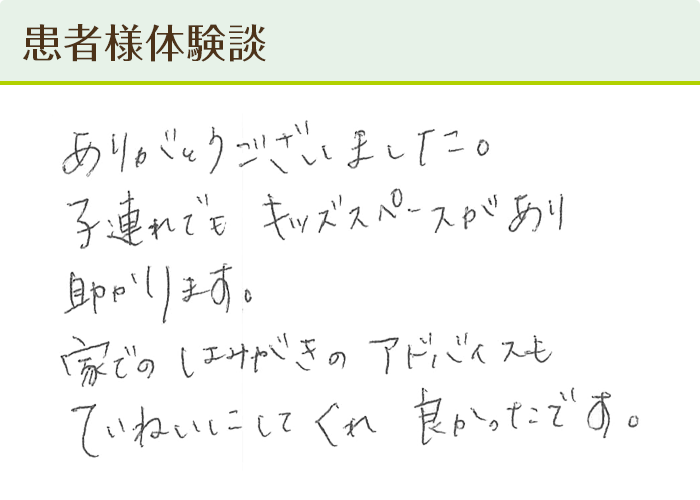 患者様体験談
ありがとうございました。
子連れでも キッズスペースがあり
助かります。
家での はみがきの アドバイスも
ていねいにして くれ 良かったです。